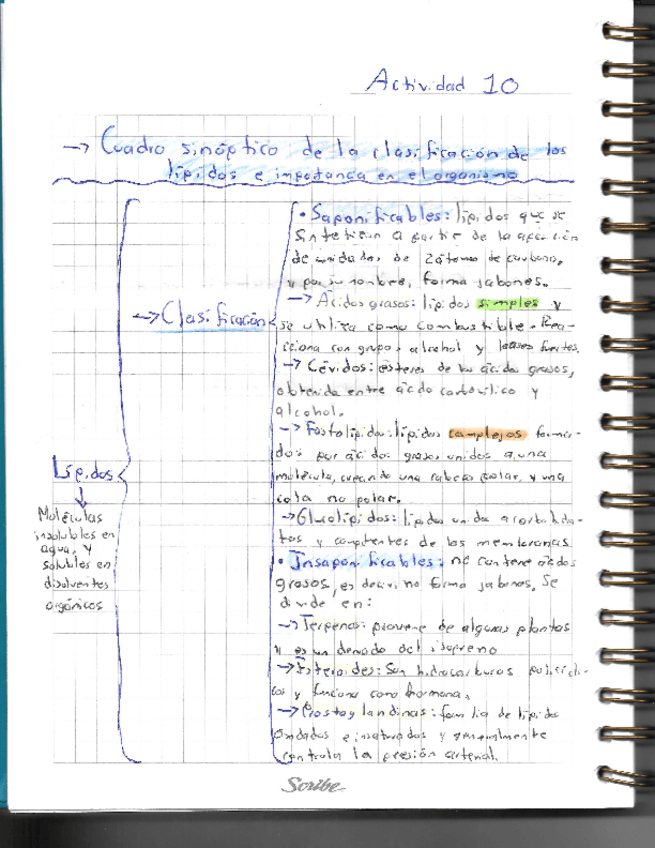 Actividad 10
→ Cuadro sinóptico de la clasificación de los
lípidos e importancia en el organismo
• Saponificables: lípidos que se
sintetizan a partir de la
de unidades de 2 átomos de carbono,
y por su nombre, forma jabones.
→ Clasificación
→ Ácidos grasos: lípidos simples y
se utiliza como combustible. Reac-
ciona con grupos alcohol y bases fuertes.
→ Cévidos: ésteres de los ácidos grasos,
obtenida entre ácido carboxílico y
alcohol.
→ Fosfolípidos: lípidos complejos forma-
dos por ácidos grasos unidos a una
molécula, creando una cabeza polar, y una
cola no polar.
Lípidos
→ Glucolípidos: lípidos unido a carbohidra-
tos y componentes de las membranas
Moléculas
insolubles en
agua, y
solubles en
disolventes
orgánicos
• Insaponificables: no contiene ácidos
grasos, es decir, no forma jabones. Se
divide en:
→ Terpenos: proviene de algunas plantas
y es un derivado del isopreno
→ Esteroides: Son hidrocarburos policícli-
cos y funciona como hormona.
→ Prostaglandinas: familia de lípidos
e insaturados y generalmente
controla la presión arterial.
Scribe